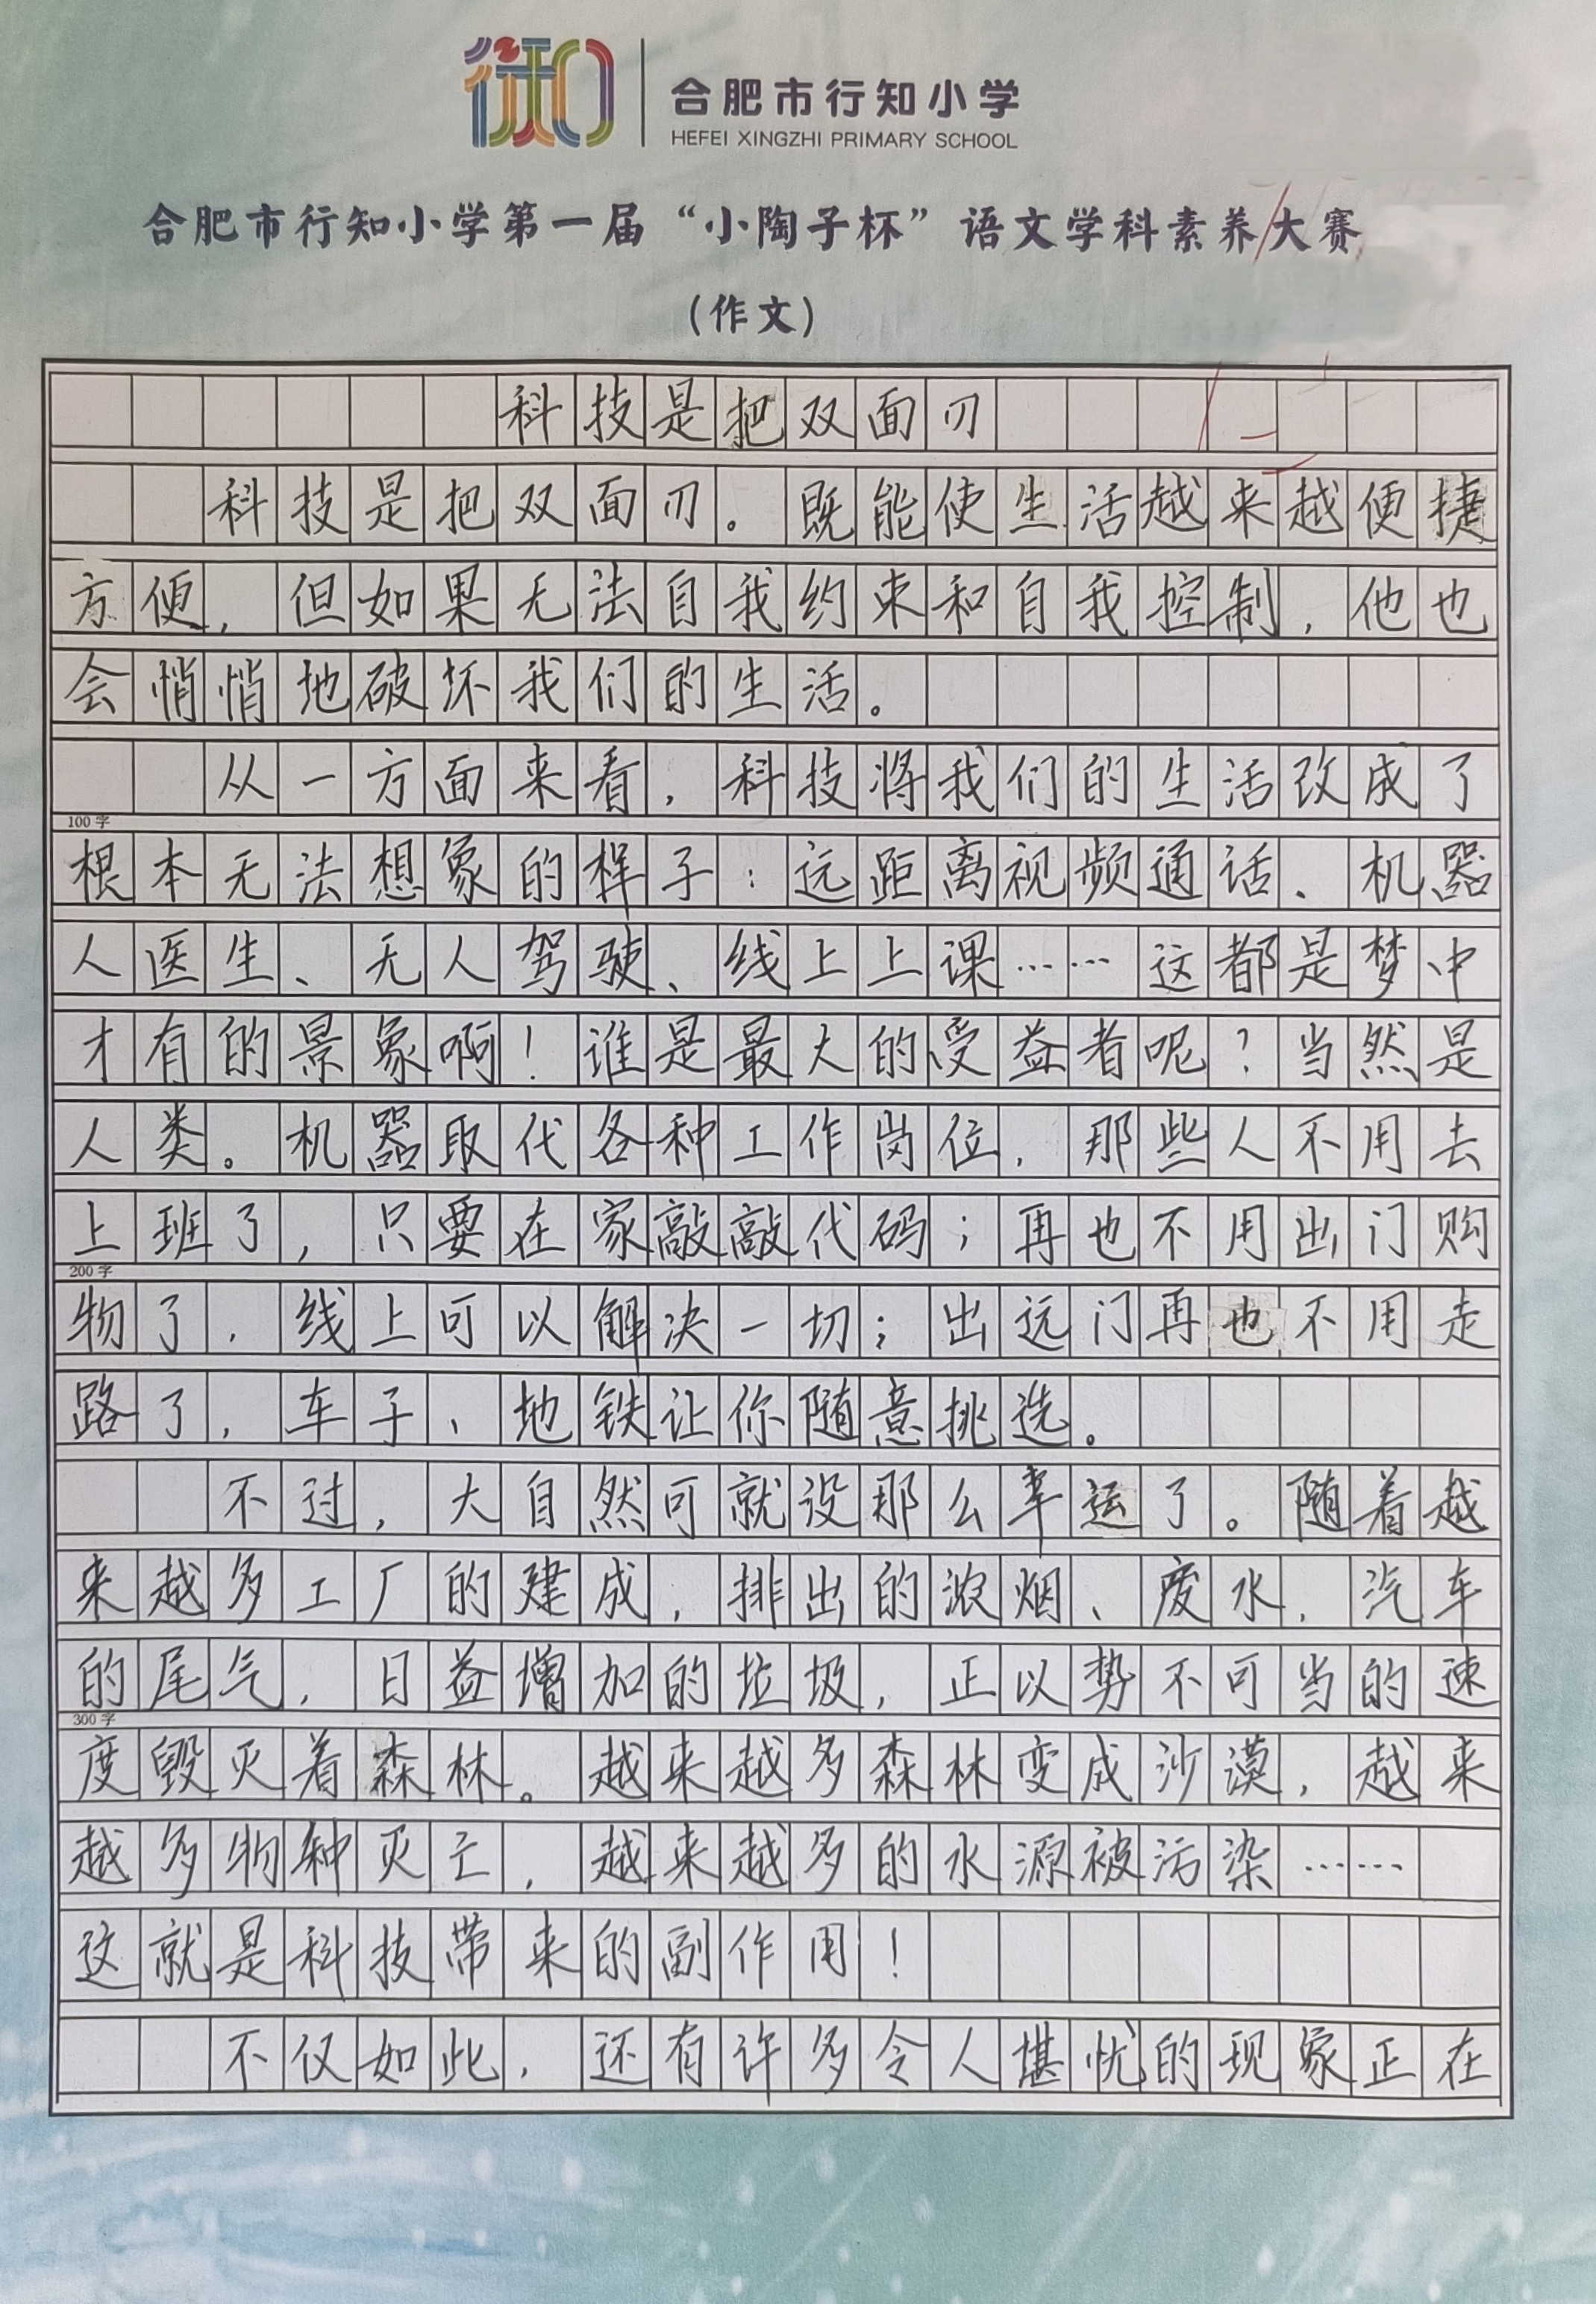 行知
合肥市行知小学
HEFEI XINGZHI PRIMARY SCHOOL
合肥市行知小学第一届“小陶子杯”语文学科素养大赛
(作文)
科技是把双面刃
科技是把双面刃。既能使生活越来越便捷
方便,但如果无法自我约束和自我控制,他也
会悄悄地破坏我们的生活。
从一方面来看,科技将我们的生活改成了
100字
根本无法想象的样子:远距离视频通话、机器
人医生、无人驾驶、线上上课……这都是梦中
才有的景象啊!谁是最大的受益者呢?当然是
人类。机器取代各种工作岗位,那些人不用去
上班了,只要在家敲敲代码;再也不用出门购
200字
物了,线上可以解决一切;出远门再也不用走
路了,车子、地铁让你随意挑选。
不过,大自然可就没那么幸运了。随着越
来越多工厂的建成,排出的浓烟、废水,汽车
的尾气,日益增加的垃圾,正以势不可当的速
300字
度毁灭着森林。越来越多森林变成沙漠,越来
越多物种灭亡,越来越多的水源被污染……
这就是科技带来的副作用!
不仅如此,还有许多令人堪忧的现象正在